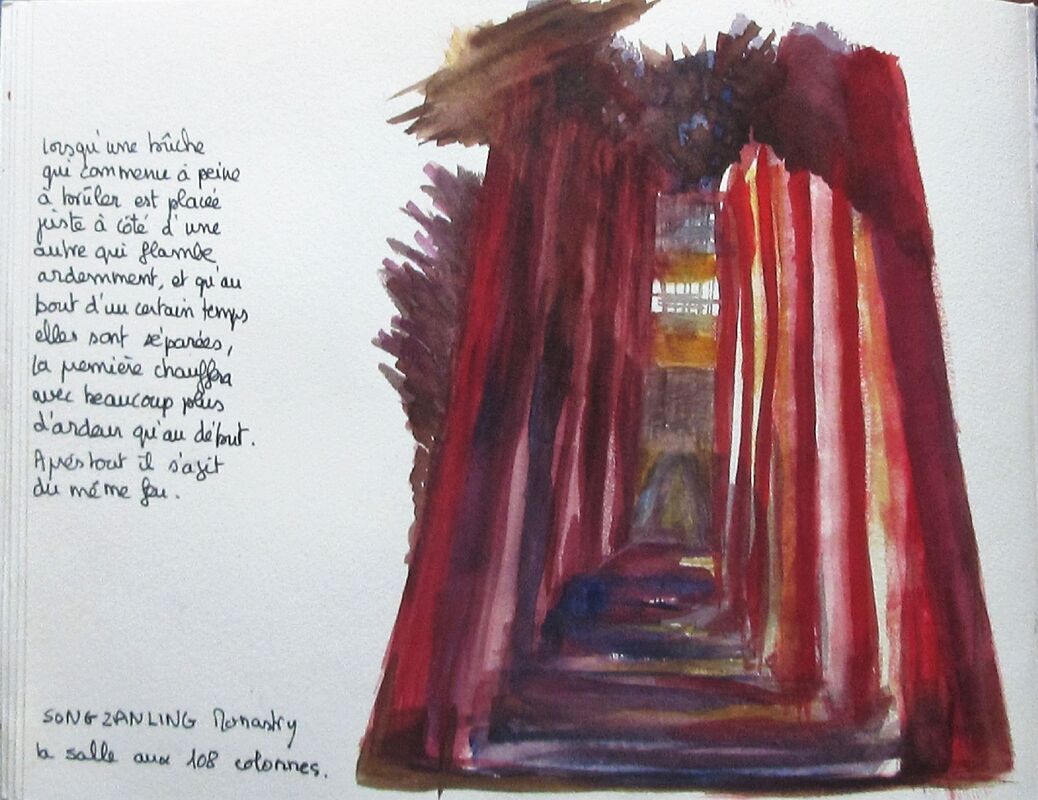 Lorsqu'une bûche
qui commence à peine
à brûler est placée
juste à côté d'une
autre qui flambe
ardemment, et qu'au
bout d'un certain temps
elles sont séparées,
la première chauffera
avec beaucoup plus
d'ardeur qu'au début.
Après tout il s'agit
du même feu.
SONGZANLING Monastry
la salle aux 108 colonnes.